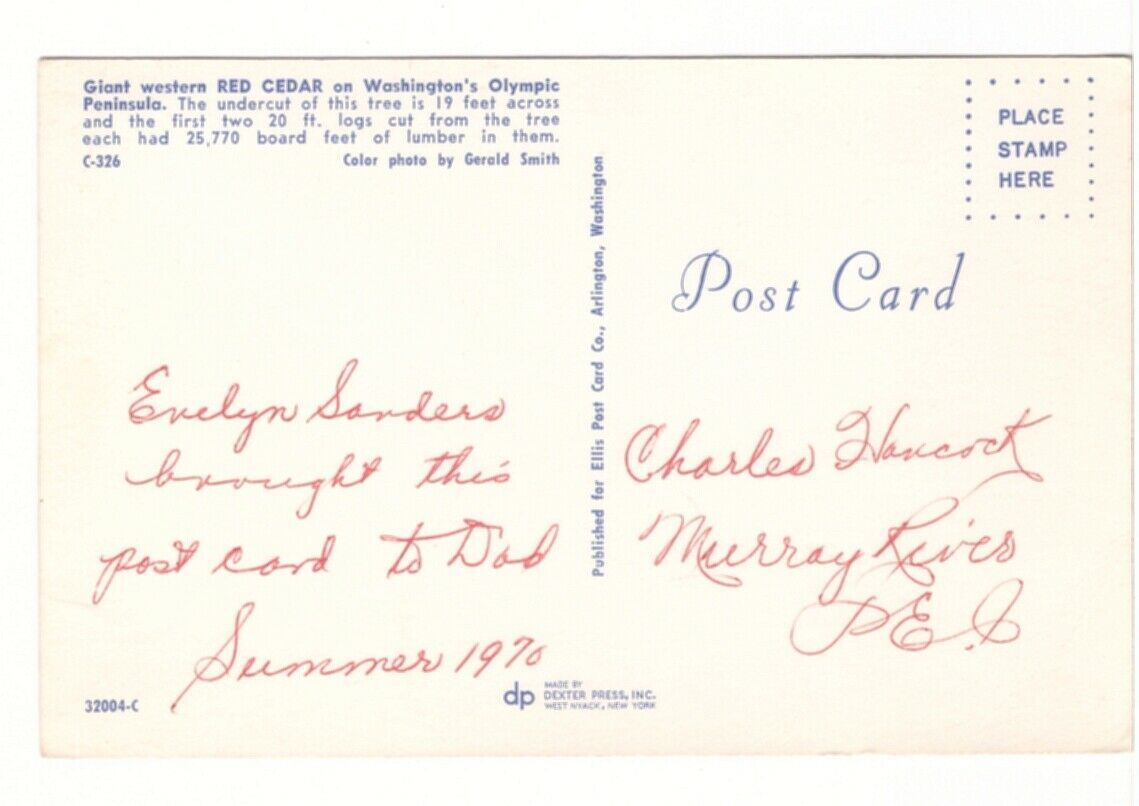 Giant western RED CEDAR on Washington's Olympic
Peninsula. The undercut of this tree is 19 feet across
and the first two 20 ft. logs cut from the tree
each had 25,770 board feet of lumber in them.
C-326 Color photo by Gerald Smith
PLACE
STAMP
HERE
Post Card
Published for Ellis Post Card Co., Arlington, Washington
Evelyn Sanders
brought this
post card to Dad
Summer 1970
Charles Hancock
Murray River
P.E.I.
32004-C
dp MADE BY
DEXTER PRESS, INC.
WEST NYACK, NEW YORK